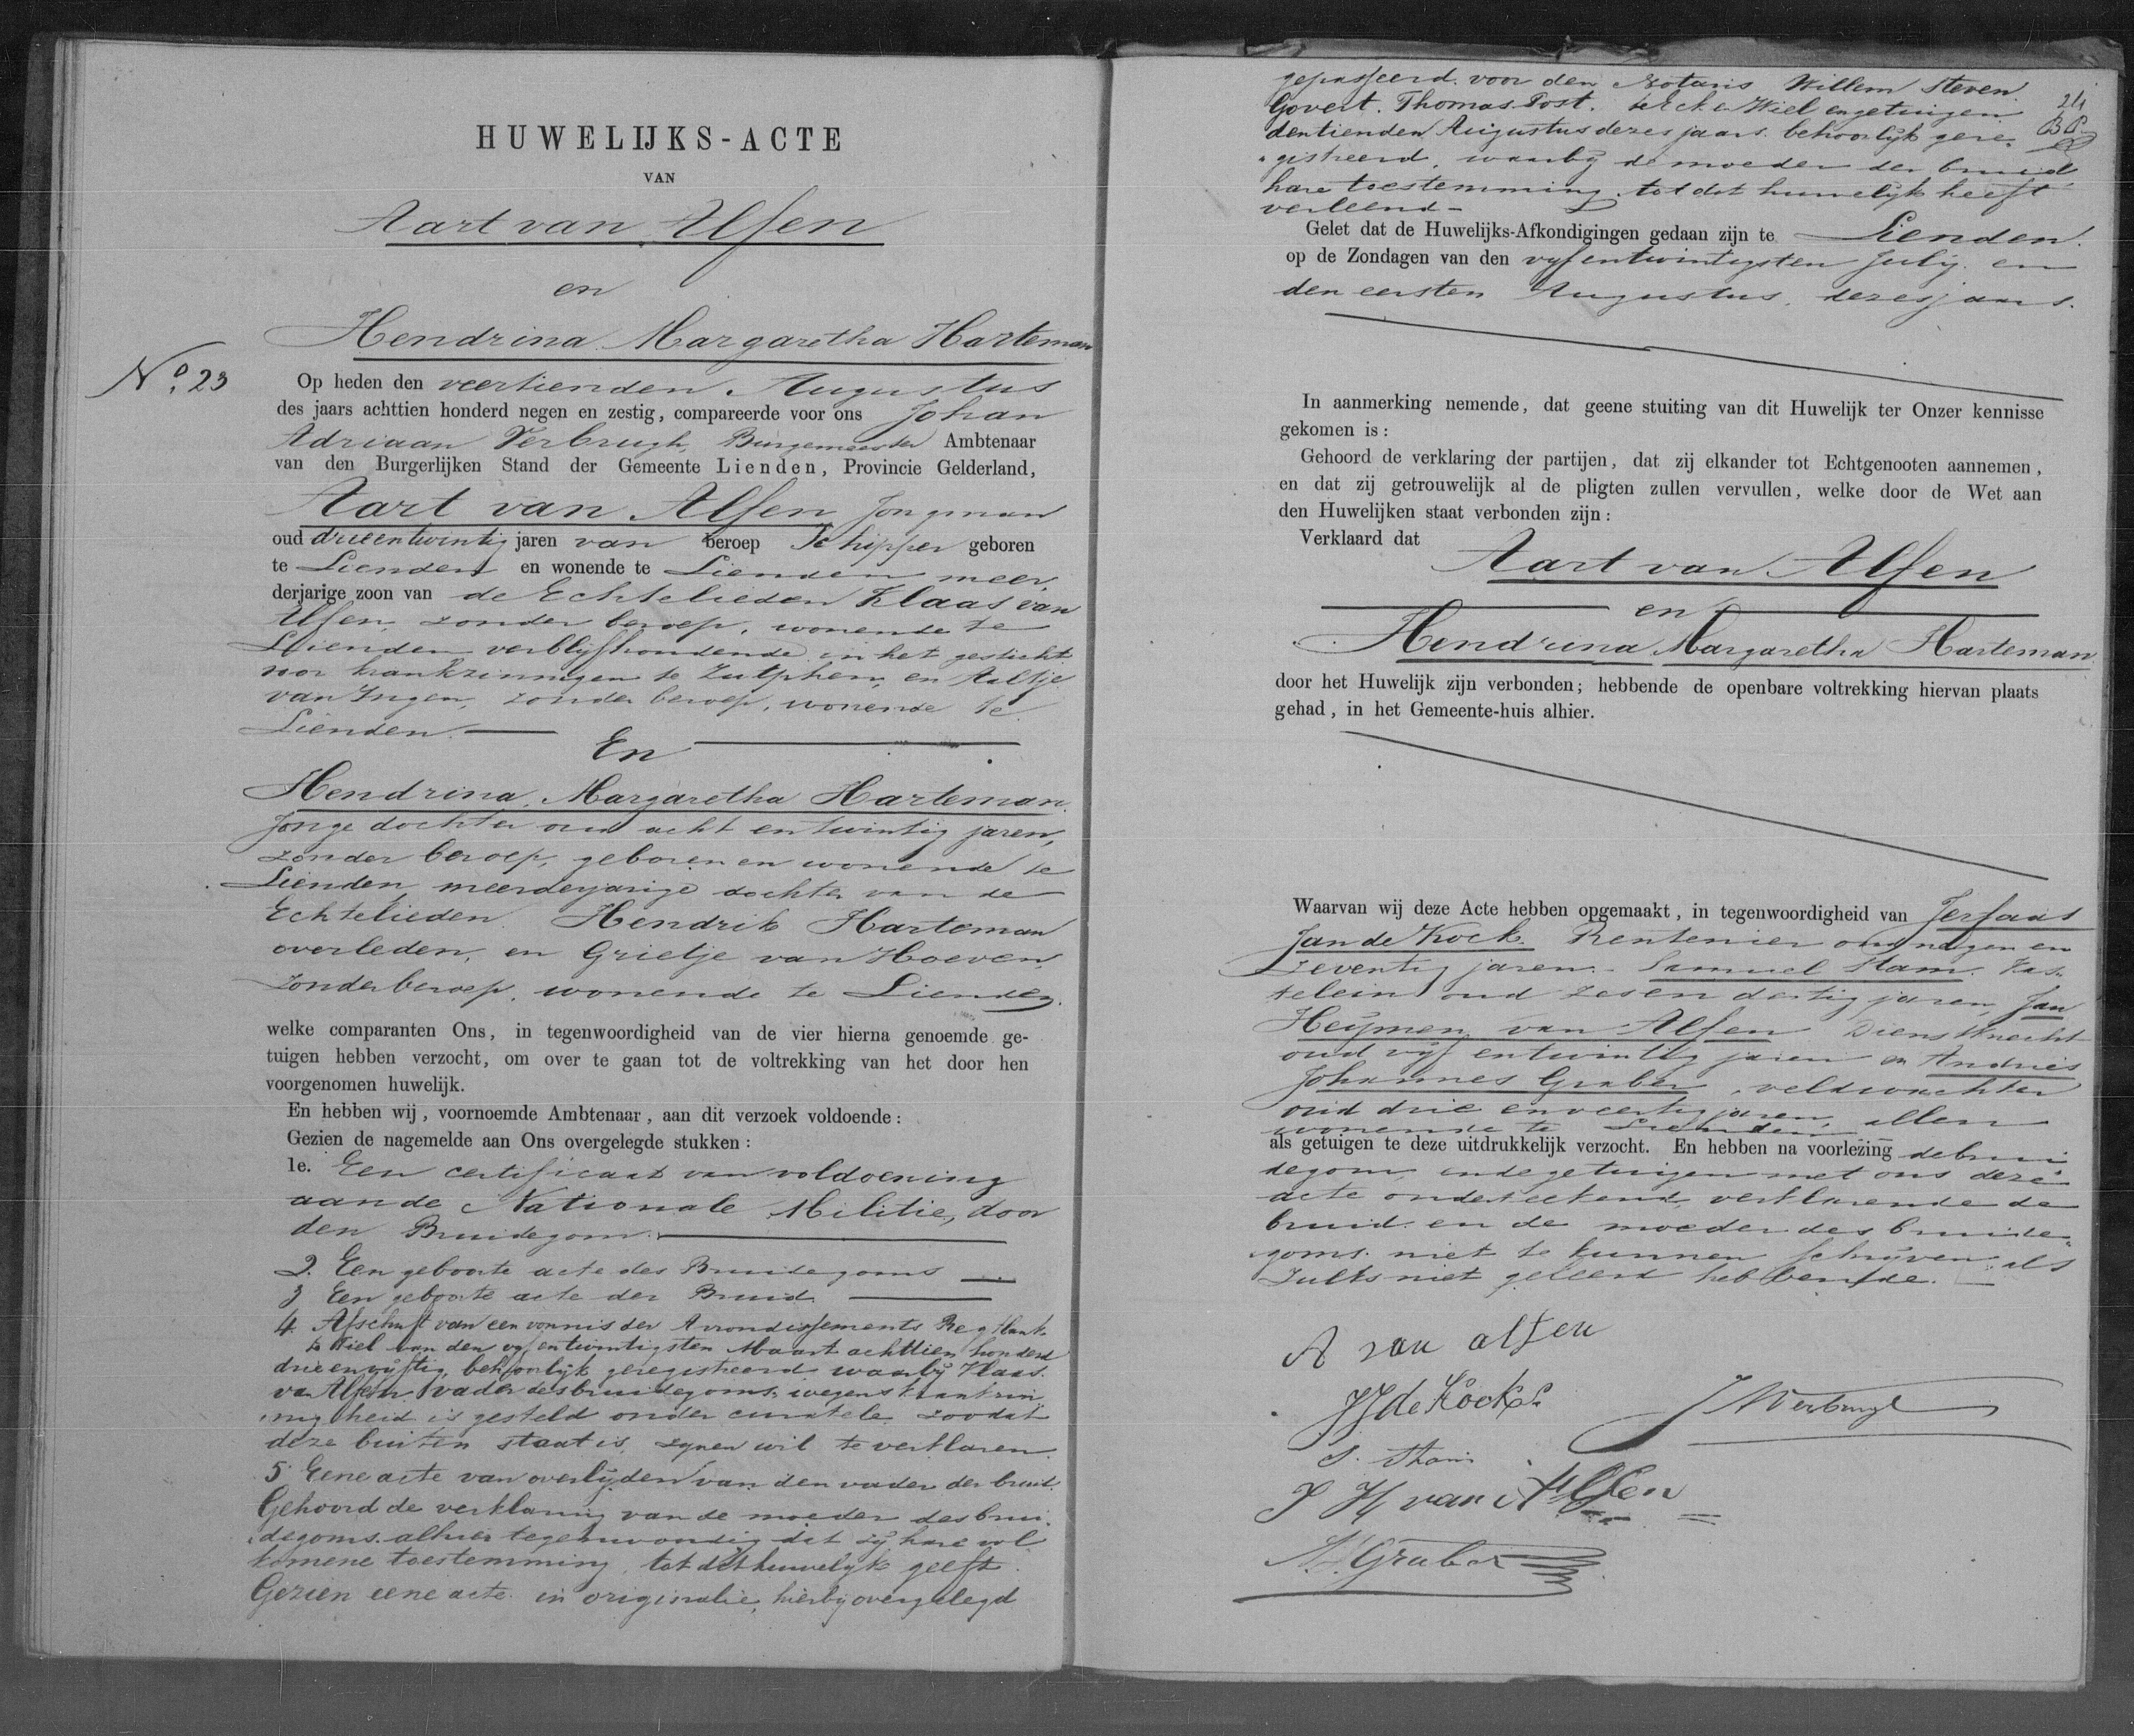 HUWELIJKS-ACTE
VAN
Aart van Alfen
en
Hendrina Margaretha Harteman
No. 23
Op heden den veertienden Augustus
des jaars achttien honderd negen en zestig, compareerde voor ons Johan
Adriaan Verbrugh, Burgemeester Ambtenaar
van den Burgerlijken Stand der Gemeente Lienden, Provincie Gelderland,
Aart van Alfen Jongman
oud drieentwintig jaren van beroep Schipper geboren
te Lienden en wonende te Lienden meer
derjarige zoon van de Echtelieden Klaas van
Alfen, zonder beroep, wonende te
Lienden verblijfhoudende in het gesticht
voor krankzinnigen te Zutphen, en Aaltje
van Ingen, zonder beroep, wonende te
Lienden.
En
Hendrina Margaretha Harteman.
Jonge dochter oud acht entwintig jaren,
zonder beroep, geboren en wonende te
Lienden, meerderjarige dochter van de
Echtelieden Hendrik Harteman
overleden, en Grietje van Hoeven,
zonder beroep, wonende te Lienden.
welke comparanten Ons, in tegenwoordigheid van de vier hierna genoemde ge-
tuigen hebben verzocht, om over te gaan tot de voltrekking van het door hen
voorgenomen huwelijk.
En hebben wij, voornoemde Ambtenaar, aan dit verzoek voldoende:
Gezien de nagemelde aan Ons overgelegde stukken:
1e. Een certificaat van voldoening
aan de Nationale Militie, door
den Bruidegom.
2. Een geboorte acte des Bruidegoms
3 Een geboorte acte der Bruid.
4. Afschrift van een vonnis der Arrondissements Regtbank
te Tiel van den vyf entwintigsten Maart achttien honderd
drie en vijftig, behoorlijk geregistreerd waarbij Klaas
van Alfen vader des bruidegoms, wegens krankzin
nigheid is gesteld onder curatele zoodat
deze buiten staat is, zynen wil te verklaren.
5. Eene acte van overlijden van den vader der bruid.
Gehoord de verklaring van de moeder des brui
degoms. alhier tegenwoordig dat zij hare vol
komene toestemming, tot dit huwelijk geeft.
Gezien eene acte in originalie, hierbij overgelegd
gepasseerd voor den Notaris Willem Steven
Govert. Thomas Post. te Eck en Wiel en getuigen
den tienden Augustus dezes jaars. behoorlijk gere-
gistreerd, waarbij de moeder der bruid
hare toestemming tot dit huwelijk heeft
verleend -
24
Gelet dat de Huwelijks-Afkondigingen gedaan zijn te Lienden.
op de Zondagen van den vyf entwintigsten July en
den eersten Augustus, dezes jaars.
In aanmerking nemende, dat geene stuiting van dit Huwelijk ter Onzer kennisse
gekomen is:
Gehoord de verklaring der partijen, dat zij elkander tot Echtgenooten aannemen,
en dat zij getrouwelijk al de pligten zullen vervullen, welke door de Wet aan
den Huwelijken staat verbonden zijn:
Verklaard dat Aart van Alfen
en
Hendrina Margaretha Harteman
door het Huwelijk zijn verbonden; hebbende de openbare voltrekking hiervan plaats
gehad, in het Gemeente-huis alhier.
Waarvan wij deze Acte hebben opgemaakt, in tegenwoordigheid van Jerfaas
Jan de Kock. Rentenier oud negen en
zeventig jaren. - Samuel Stam. Kas-
telein oud zes en dertig jaren, Jan
Heymen van Alfen Dienstknecht
oud vyf entwintig jaren en Andries
Johannes Graber, veldwachter
oud drie en veertig jaren, allen
wonende te Lienden
als getuigen te deze uitdrukkelijk verzocht. En hebben na voorlezing de brui
degom, en de getuigen met ons deze
acte onderteekend, verklarende de
bruid en de moeder des bruide-
goms. niet te kunnen schrijven als
zulks niet geleerd hebbende.
A van alfen
JJ de Kock
JAVerbrugh
S. Stam
J H van Alfen
A.J. Graber